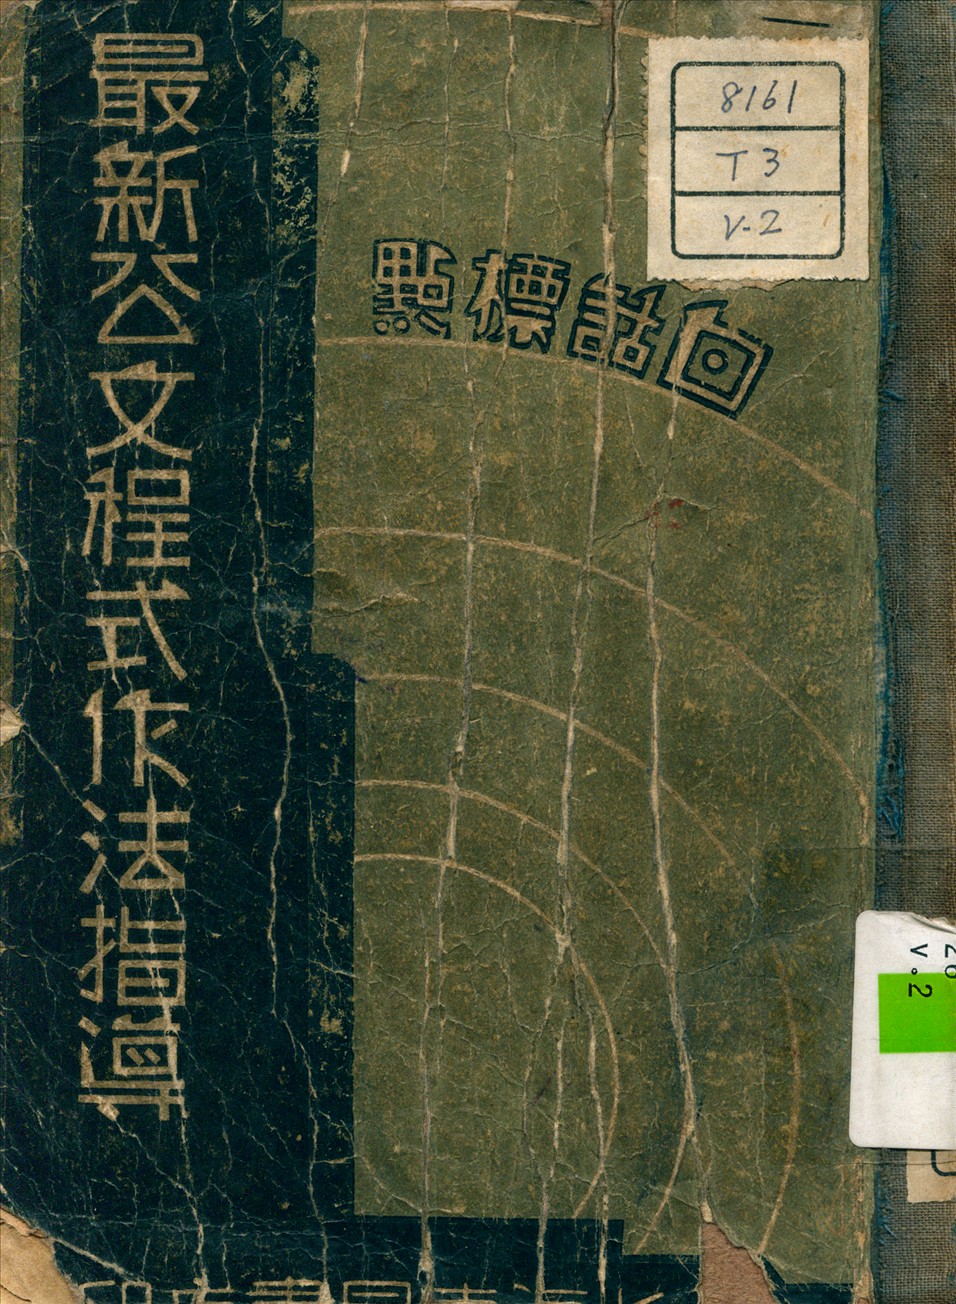 白話標點
最新公文程式作法指導
8161
T3
V-2
v.2